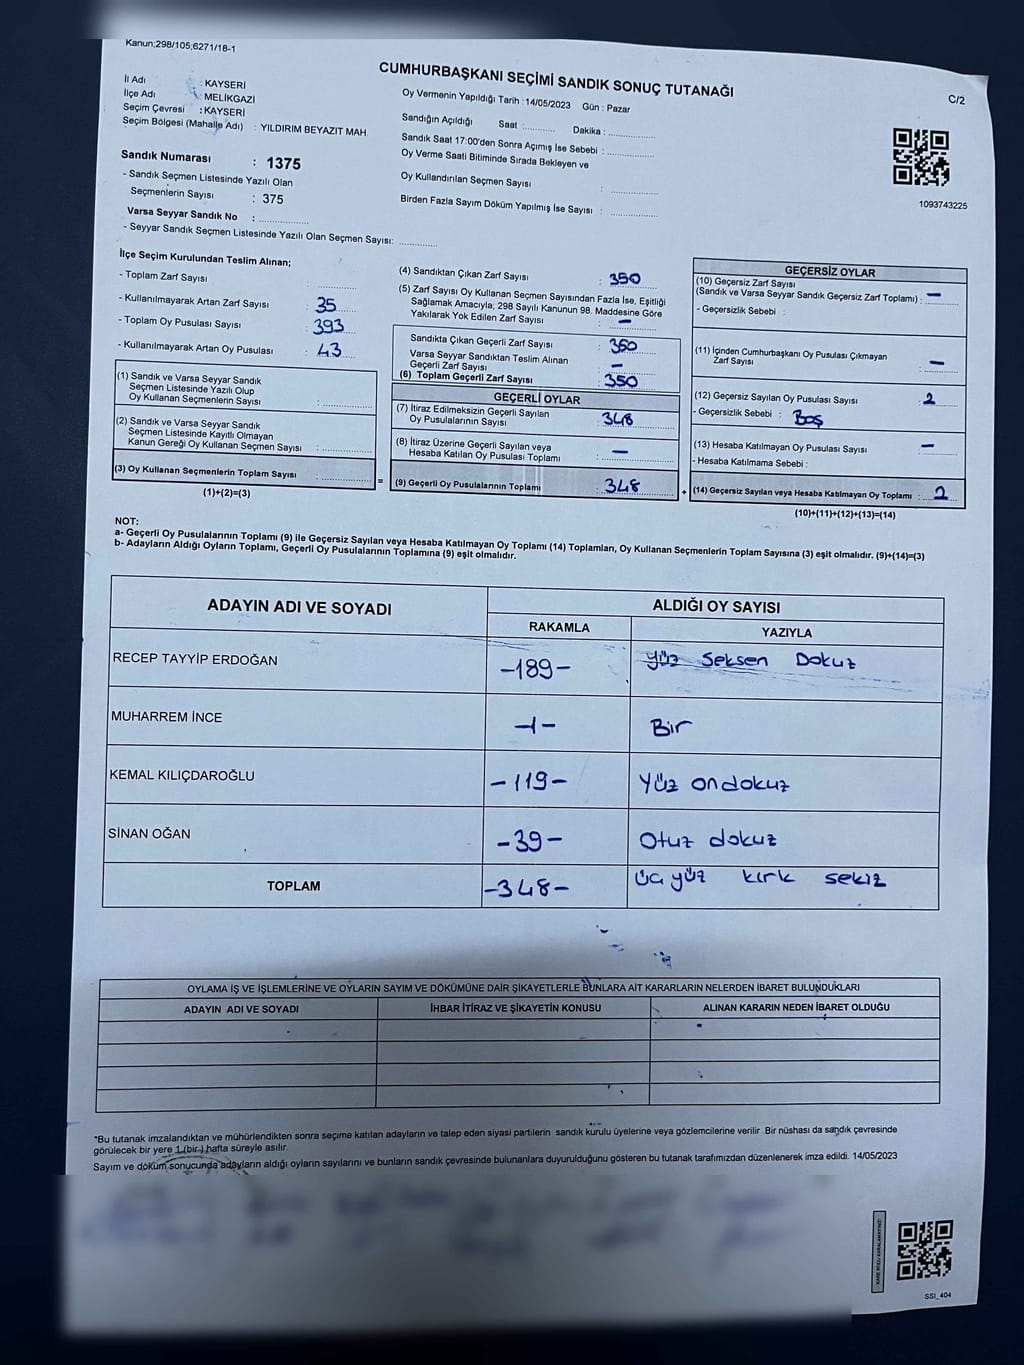 Kanun;298/105;6271/18-1
CUMHURBAŞKANI SEÇİMİ SANDIK SONUÇ TUTANAĞI
C/2
İl Adı : KAYSERİ
İlçe Adı : MELİKGAZİ
Seçim Çevresi : KAYSERİ
Seçim Bölgesi (Mahalle Adı) : YILDIRIM BEYAZIT MAH.
Sandık Numarası : 1375
- Sandık Seçmen Listesinde Yazılı Olan
Seçmenlerin Sayısı : 375
Varsa Seyyar Sandık No : ..............
- Seyyar Sandık Seçmen Listesinde Yazılı Olan Seçmen Sayısı: ............
Oy Vermenin Yapıldığı Tarih : 14/05/2023 Gün : Pazar
Sandığın Açıldığı Saat :........... Dakika : ..............
Sandık Saat 17:00'den Sonra Açımış İse Sebebi : ..............
Oy Verme Saati Bitiminde Sırada Bekleyen ve
Oy Kullandırılan Seçmen Sayısı : ..............
Birden Fazla Sayım Döküm Yapılmış İse Sayısı : ..............
1093743225
İlçe Seçim Kurulundan Teslim Alınan;
- Toplam Zarf Sayısı : ..............
- Kullanılmayarak Artan Zarf Sayısı : 35
- Toplam Oy Pusulası Sayısı : 393
- Kullanılmayarak Artan Oy Pusulası : 43
(1) Sandık ve Varsa Seyyar Sandık
Seçmen Listesinde Yazılı Olup
Oy Kullanan Seçmenlerin Sayısı : ..............
(2) Sandık ve Varsa Seyyar Sandık
Seçmen Listesinde Kayıtlı Olmayan
Kanun Gereği Oy Kullanan Seçmen Sayısı : ..............
(3) Oy Kullanan Seçmenlerin Toplam Sayısı : ..............
(1)+(2)=(3)
=
(4) Sandıktan Çıkan Zarf Sayısı : 350
(5) Zarf Sayısı Oy Kullanan Seçmen Sayısından Fazla İse, Eşitliği
Sağlamak Amacıyla; 298 Sayılı Kanunun 98. Maddesine Göre
Yakılarak Yok Edilen Zarf Sayısı : —
Sandıkta Çıkan Geçerli Zarf Sayısı : 350
Varsa Seyyar Sandıktan Teslim Alınan
Geçerli Zarf Sayısı : —
(6) Toplam Geçerli Zarf Sayısı : 350
GEÇERLİ OYLAR
(7) İtiraz Edilmeksizin Geçerli Sayılan
Oy Pusulalarının Sayısı : 348
(8) İtiraz Üzerine Geçerli Sayılan veya
Hesaba Katılan Oy Pusulası Toplamı : —
(9) Geçerli Oy Pusulalarının Toplamı : 348
+
GEÇERSİZ OYLAR
(10) Geçersiz Zarf Sayısı
(Sandık ve Varsa Seyyar Sandık Geçersiz Zarf Toplamı) : —
- Geçersizlik Sebebi :
(11) İçinden Cumhurbaşkanı Oy Pusulası Çıkmayan
Zarf Sayısı : —
(12) Geçersiz Sayılan Oy Pusulası Sayısı : 2
- Geçersizlik Sebebi : Boş
(13) Hesaba Katılmayan Oy Pusulası Sayısı : —
- Hesaba Katılmama Sebebi :
(14) Geçersiz Sayılan veya Hesaba Katılmayan Oy Toplamı : 2
(10)+(11)+(12)+(13)=(14)
NOT:
a- Geçerli Oy Pusulalarının Toplamı (9) ile Geçersiz Sayılan veya Hesaba Katılmayan Oy Toplamı (14) Toplamları, Oy Kullanan Seçmenlerin Toplam Sayısına (3) eşit olmalıdır. (9)+(14)=(3)
b- Adayların Aldığı Oyların Toplamı, Geçerli Oy Pusulalarının Toplamına (9) eşit olmalıdır.
ADAYIN ADI VE SOYADI ALDIĞI OY SAYISI
RAKAMLA YAZIYLA
RECEP TAYYİP ERDOĞAN -189- Yüz Seksen Dokuz
MUHARREM İNCE -1- Bir
KEMAL KILIÇDAROĞLU -119- Yüz ondokuz
SİNAN OĞAN -39- Otuz dokuz
TOPLAM -348- Üç yüz kırk sekiz
OYLAMA İŞ VE İŞLEMLERİNE VE OYLARIN SAYIM VE DÖKÜMÜNE DAİR ŞİKAYETLERLE BUNLARA AİT KARARLARIN NELERDEN İBARET BULUNDUKLARI
ADAYIN ADI VE SOYADI İHBAR İTİRAZ VE ŞİKAYETİN KONUSU ALINAN KARARIN NEDEN İBARET OLDUĞU
*Bu tutanak imzalandıktan ve mühürlendikten sonra seçime katılan adayların ve talep eden siyasi partilerin sandık kurulu üyelerine veya gözlemcilerine verilir .Bir nüshası da sandık çevresinde
görülecek bir yere 1 (bir ) hafta süreyle asılır.
Sayım ve döküm sonucunda adayların aldığı oyların sayılarını ve bunların sandık çevresinde bulunanlara duyurulduğunu gösteren bu tutanak tarafımızdan düzenlenerek imza edildi. 14/05/2023
KARE KODU KARALAMAYINIZ!
SSI_404